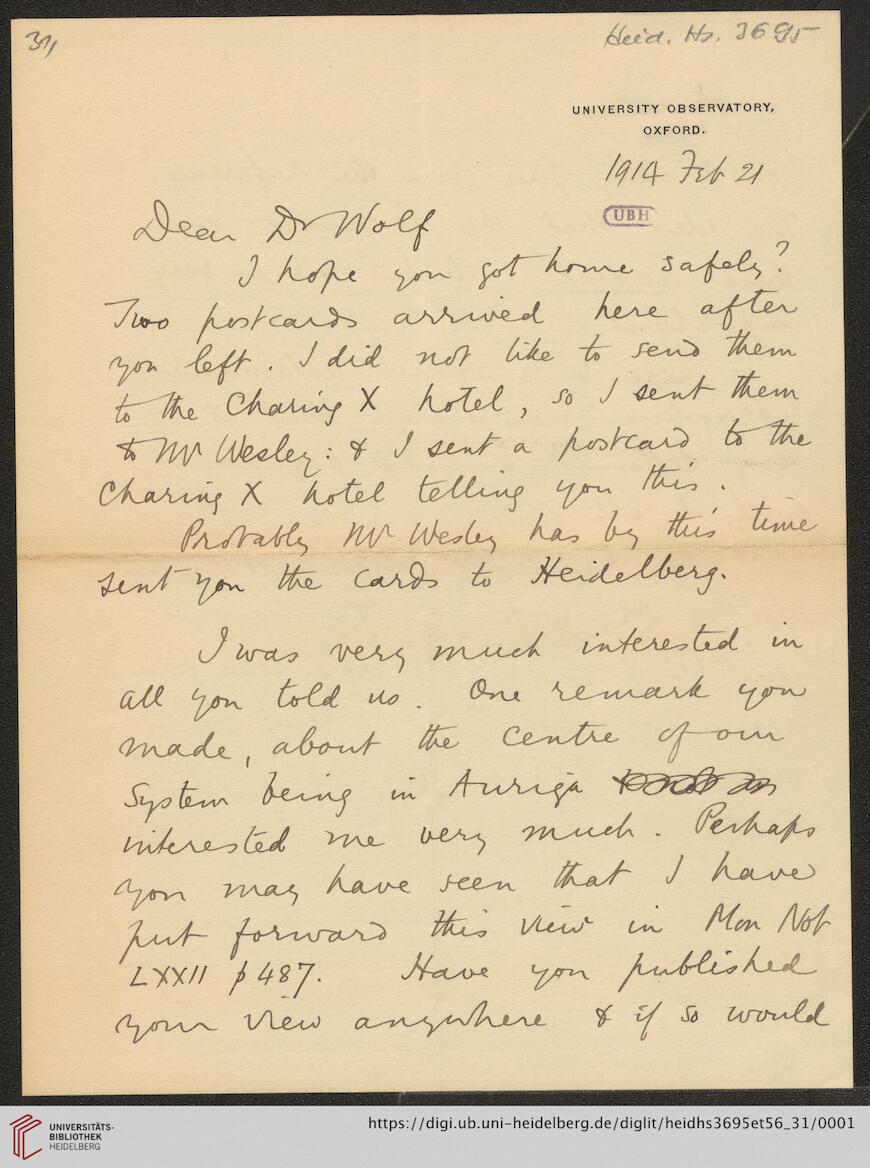 31,
Heid. Hs. 3695
UNIVERSITY OBSERVATORY,
OXFORD.
1914 Feb 21
UBH
Dear Dr Wolf
I hope you got home safely?
Two postcards arrived here after
you left. I did not like to send them
to the Charing X hotel, so I sent them
to Mr Wesley: & I sent a postcard to the
Charing X hotel telling you this.
Probably Mr Wesley has by this time
sent you the cards to Heidelberg.
I was very much interested in
all you told us. One remark you
made, about the centre of our
System being in Auriga
interested me very much. Perhaps
you may have seen that I have
put forward this view in Mon Not
LXXII p 487. Have you published
your view anywhere & if so would
UNIVERSITÄTS-
BIBLIOTHEK
HEIDELBERG
https://digi.ub.uni-heidelberg.de/diglit/heidhs3695et56_31/0001